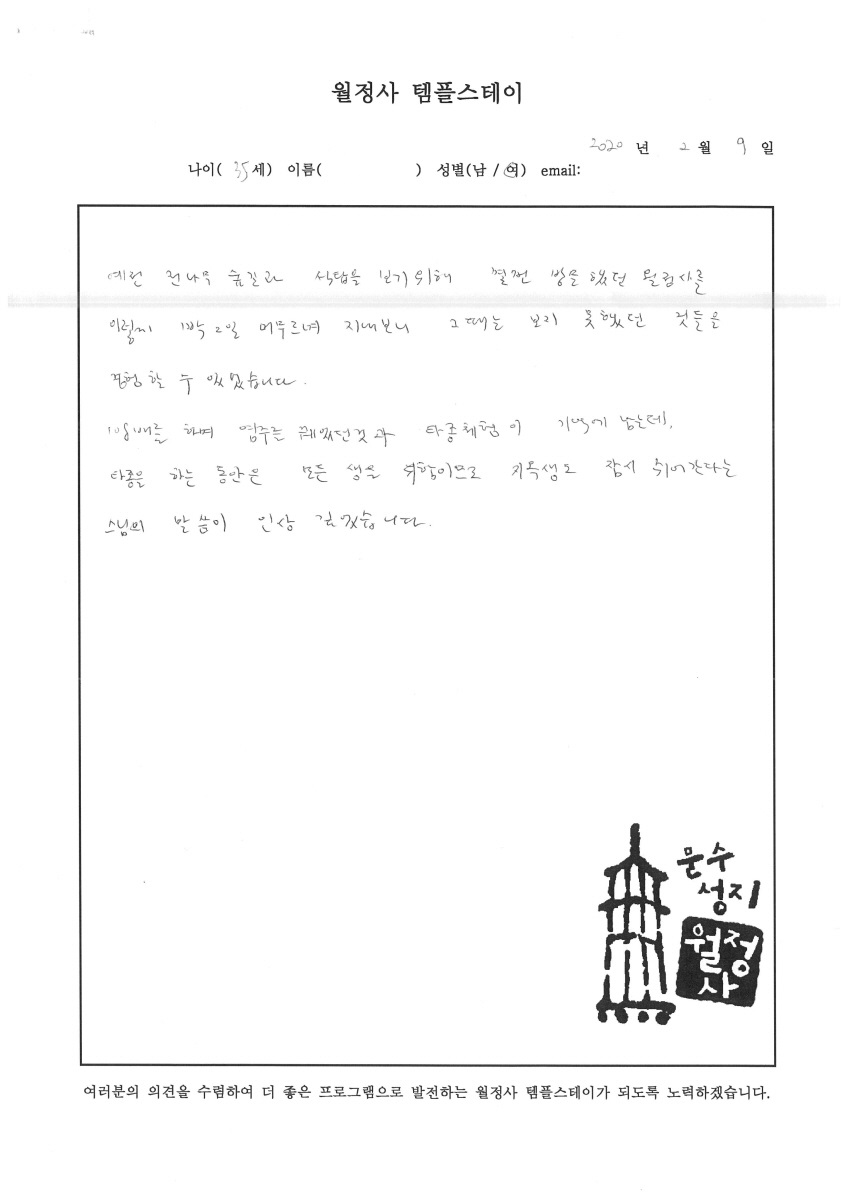 월정사 템플스테이
2020 년 2 월 9 일
나이( 35세) 이름( ) 성별(남 / 여) email:
예전 전나무 숲길과 석탑을 보기위해 몇번 방문했던 월정사를
이렇게 1박 2일 머무르며 지내보니 그때는 보지 못했던 것들을
경험할 수 있었습니다.
108배를 하며 염주를 꿰었던것과 타종체험이 기억에 남는데,
타종을 하는 동안은 모든 생을 위함이므로 지옥생도 잠시 쉬어간다는
스님의 말씀이 인상 깊었습니다.
문수
성지
월정
사
여러분의 의견을 수렴하여 더 좋은 프로그램으로 발전하는 월정사 템플스테이가 되도록 노력하겠습니다.